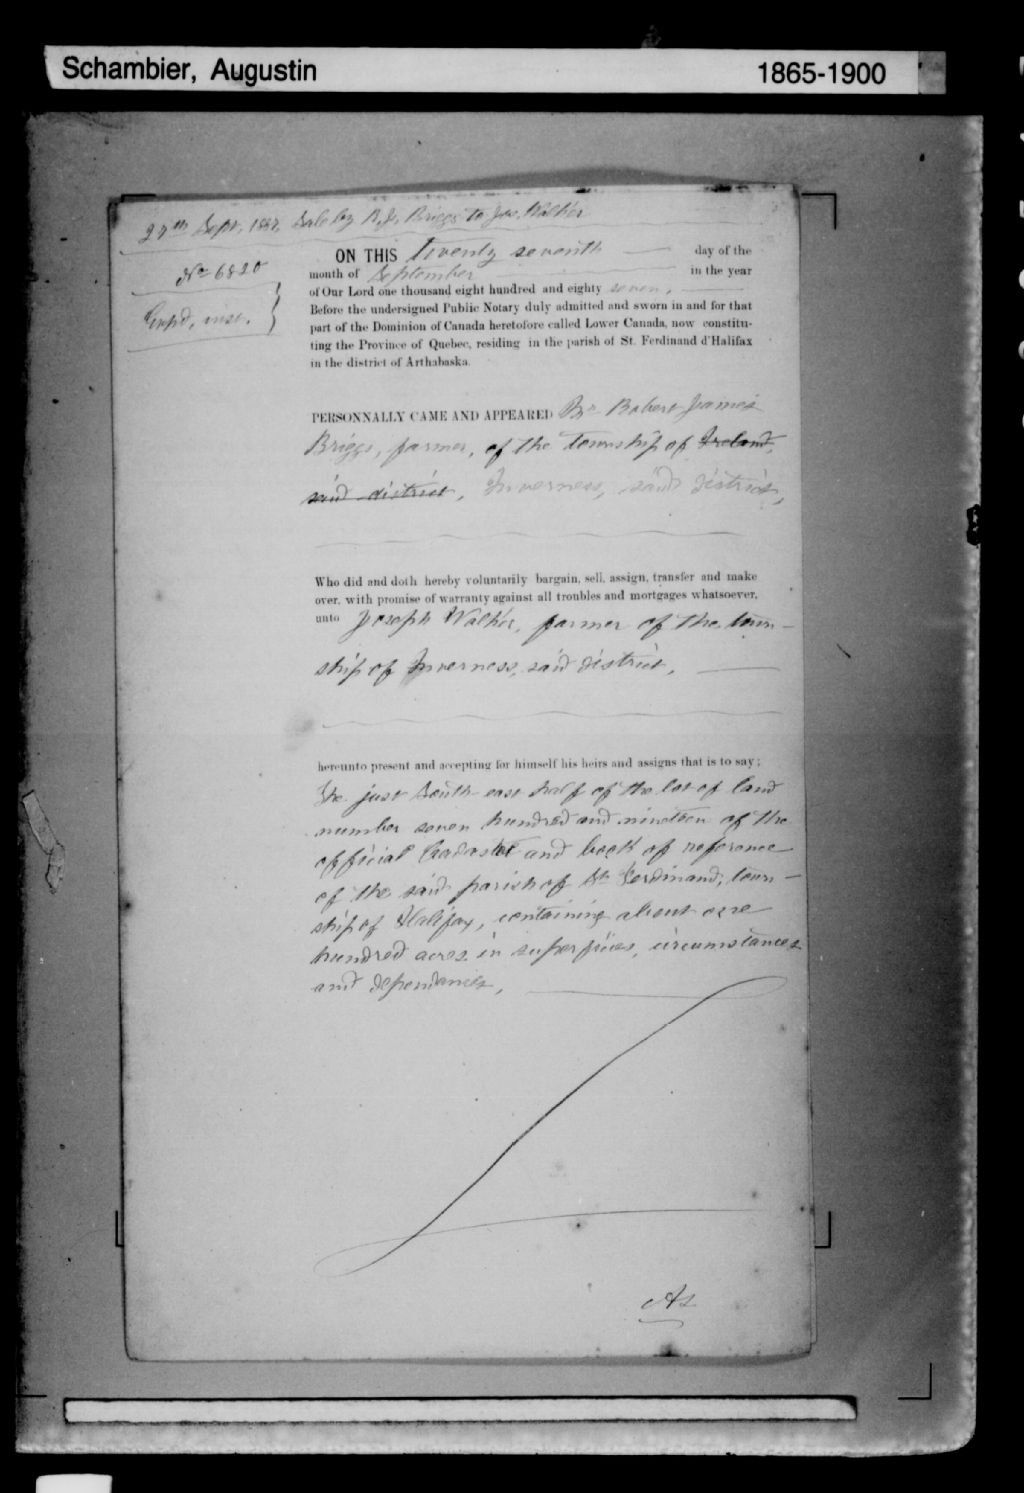 Schambier, Augustin 1865-1900
27th Sept. 1887. Sale by R. J. Briggs to Jos. Walker
No 6820
ON THIS twenty seventh day of the
month of September in the year
of Our Lord one thousand eight hundred and eighty seven,
Before the undersigned Public Notary duly admitted and sworn in and for that
part of the Dominion of Canada heretofore called Lower Canada, now constitu-
ting the Province of Quebec, residing in the parish of St. Ferdinand d'Halifax
in the district of Arthabaska.
PERSONNALLY CAME AND APPEARED Mr Robert James
Briggs, farmer, of the township of Ireland,
said district, Inverness, said district,
Who did and doth hereby voluntarily bargain, sell, assign, transfer and make
over, with promise of warranty against all troubles and mortgages whatsoever,
unto Joseph Walker, farmer of the town-
ship of Inverness, said district,
hereunto present and accepting for himself his heirs and assigns that is to say:
The just South east half of the lot of land
number seven hundred and nineteen of the
official Cadaster and book of reference
of the said parish of St. Ferdinand, town-
ship of Halifax, containing about one
hundred acres in superficies, circumstances
and dependancies,